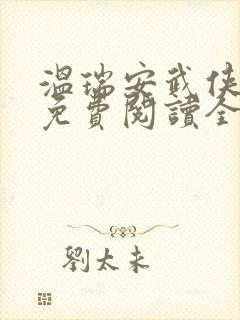 温瑞安武俠
免費閱讀全
劉太未